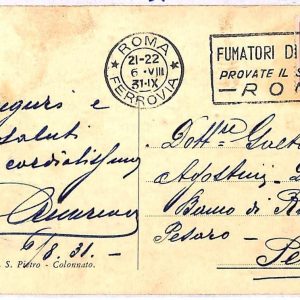 ROMA
FERROVIA
21-22
6·VIII
31·IX
FUMATORI DI
PROVATE IL S
-ROM
auguri e
saluti
cordialissimi
6/8.31.-
S. Pietro - Colonnato.
Dott.re Goeta
Agostini
Banco di R
Pesaro -
Pe